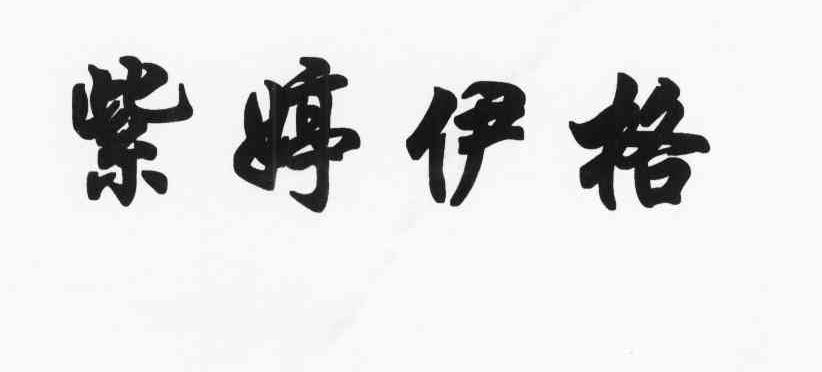 紫婷伊格